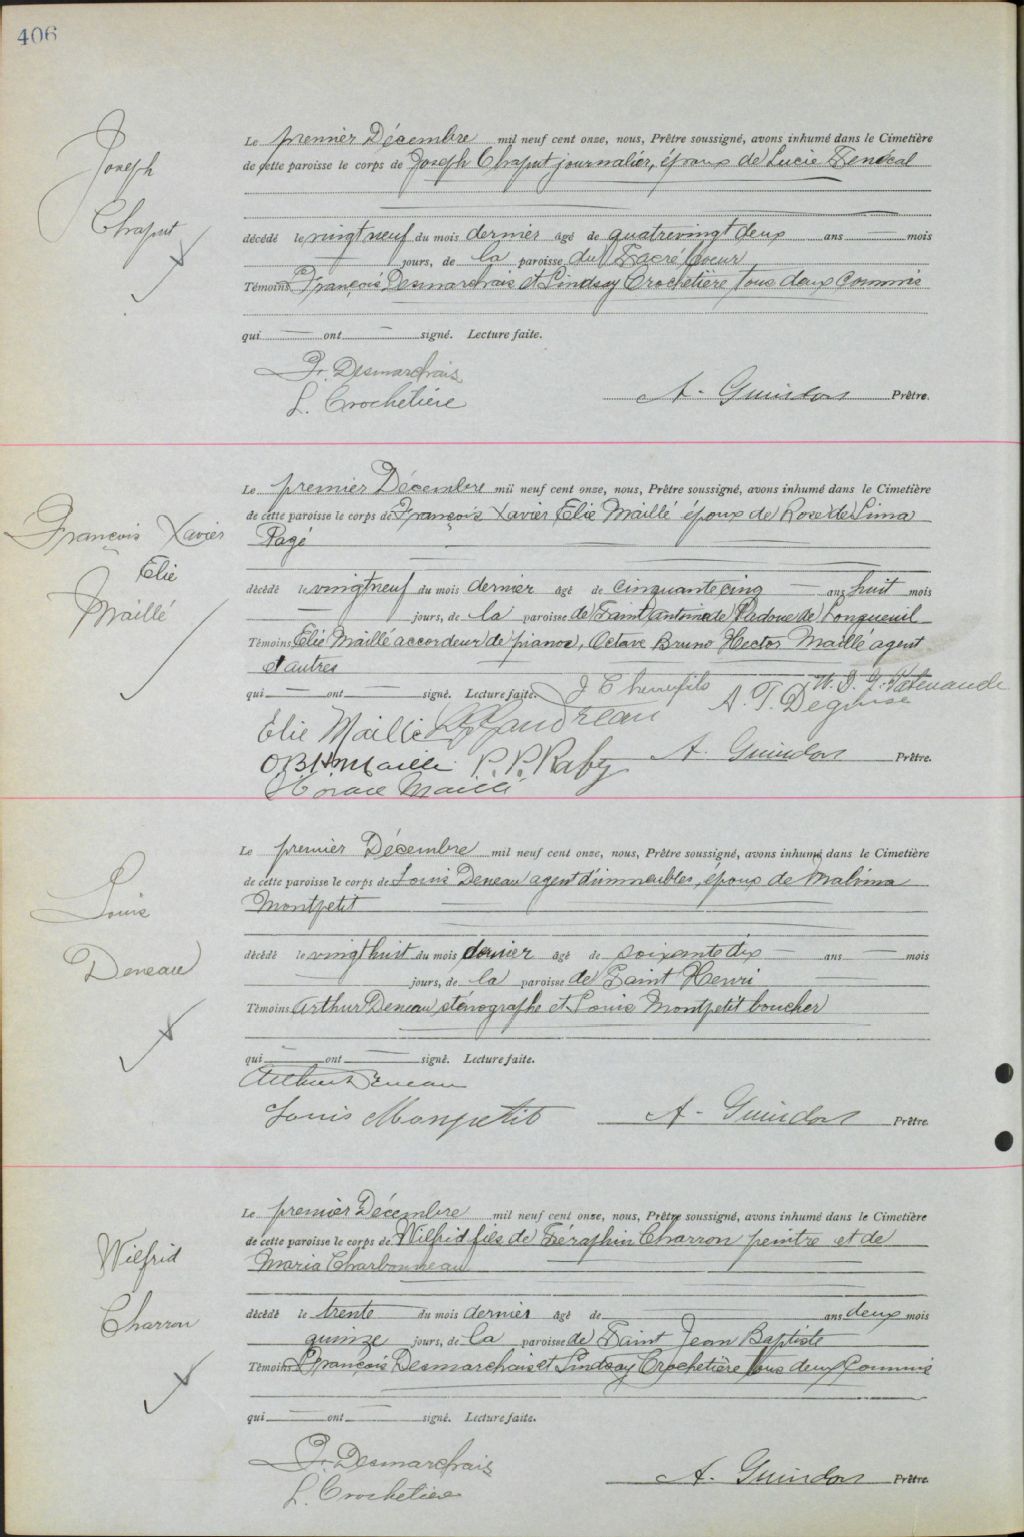 406
Joseph
Chaput
Le premier Décembre mil neuf cent onze, nous, Prêtre soussigné, avons inhumé dans le Cimetière
de cette paroisse le corps de Joseph Chaput journalier, époux de Lucie Senécal
décédé le vingt neuf du mois dernier âgé de quatrevingt deux ans — mois
jours, de la paroisse du Sacré Coeur
Témoins François Desmarchais et Lindsay Crochetière tous deux commis
qui — ont — signé. Lecture faite.
Fr. Desmarchais
L. Crochetière
A. Guindon Prêtre.
François Xavier
Elie
Maillé
Le premier Décembre mil neuf cent onze, nous, Prêtre soussigné, avons inhumé dans le Cimetière
de cette paroisse le corps de François Xavier Elie Maillé époux de Rose de Lima
Pagé
décédé le vingt neuf du mois dernier âgé de cinquante cinq ans huit mois
— jours, de la paroisse de Saint Antoine de Padoue de Longueuil
Témoins Elie Maillé accordeur de pianos, Octave Bruno Hector Maillé agent
et autres
qui — ont — signé. Lecture faite.
A. T. Deguise
Elie Maillé
O.B.H. Maillé P. P. Raby A. Guindon Prêtre.
Horace Maillé
Louis
Deneau
Le premier Décembre mil neuf cent onze, nous, Prêtre soussigné, avons inhumé dans le Cimetière
de cette paroisse le corps de Louis Deneau agent d'immeubles, époux de Malvina
Montpetit
décédé le vingt huit du mois dernier âgé de soixante dix ans — mois
— jours, de la paroisse de Saint Henri
Témoins Arthur Deneau, sténographe et Louis Montpetit boucher
qui — ont — signé. Lecture faite.
Arthur Deneau
Louis Monpetit A. Guindon Prêtre.
Wilfrid
Charron
Le premier Décembre mil neuf cent onze, nous, Prêtre soussigné, avons inhumé dans le Cimetière
de cette paroisse le corps de Wilfrid fils de Séraphin Charron peintre et de
Maria Charbonneau
décédé le trente du mois dernier âgé de — ans deux mois
quinze jours, de la paroisse de Saint Jean Baptiste
Témoins François Desmarchais et Lindsay Crochetière tous deux commis
qui — ont — signé. Lecture faite.
Fr. Desmarchais
L. Crochetière
A. Guindon Prêtre.